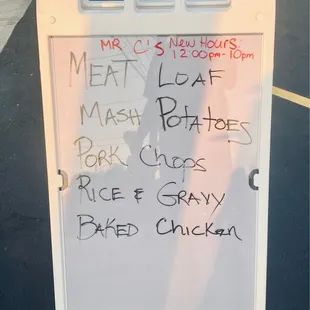 MR C'S New Hours:
12:00pm-10pm
MEAT LOAF
MASH POTATOES
PORK Chops
RICE & GRAVY
BAKED Chicken